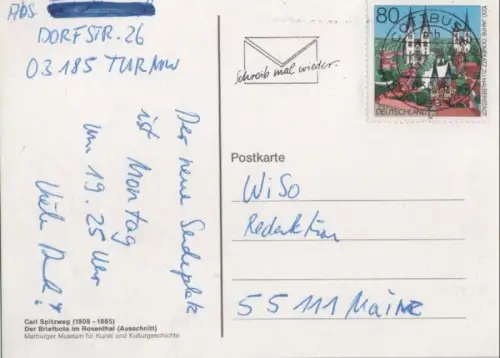 Abs
DORFSTR. 26
03185 TURNOW
Der neue Sendeplatz
ist Montag
um 19.25 Uhr
Viele Dank!
Carl Spitzweg (1808 - 1885)
Der Briefbote im Rosenthal (Ausschnitt)
Marburger Museum für Kunst und Kulturgeschichte
Schreib mal wieder.
80
COTTBUS
DEUTSCHLAND
1000 JAHRE DOMPLATZ ZU HALBERSTADT
Postkarte
WiSo
Redaktion
55111 Mainz